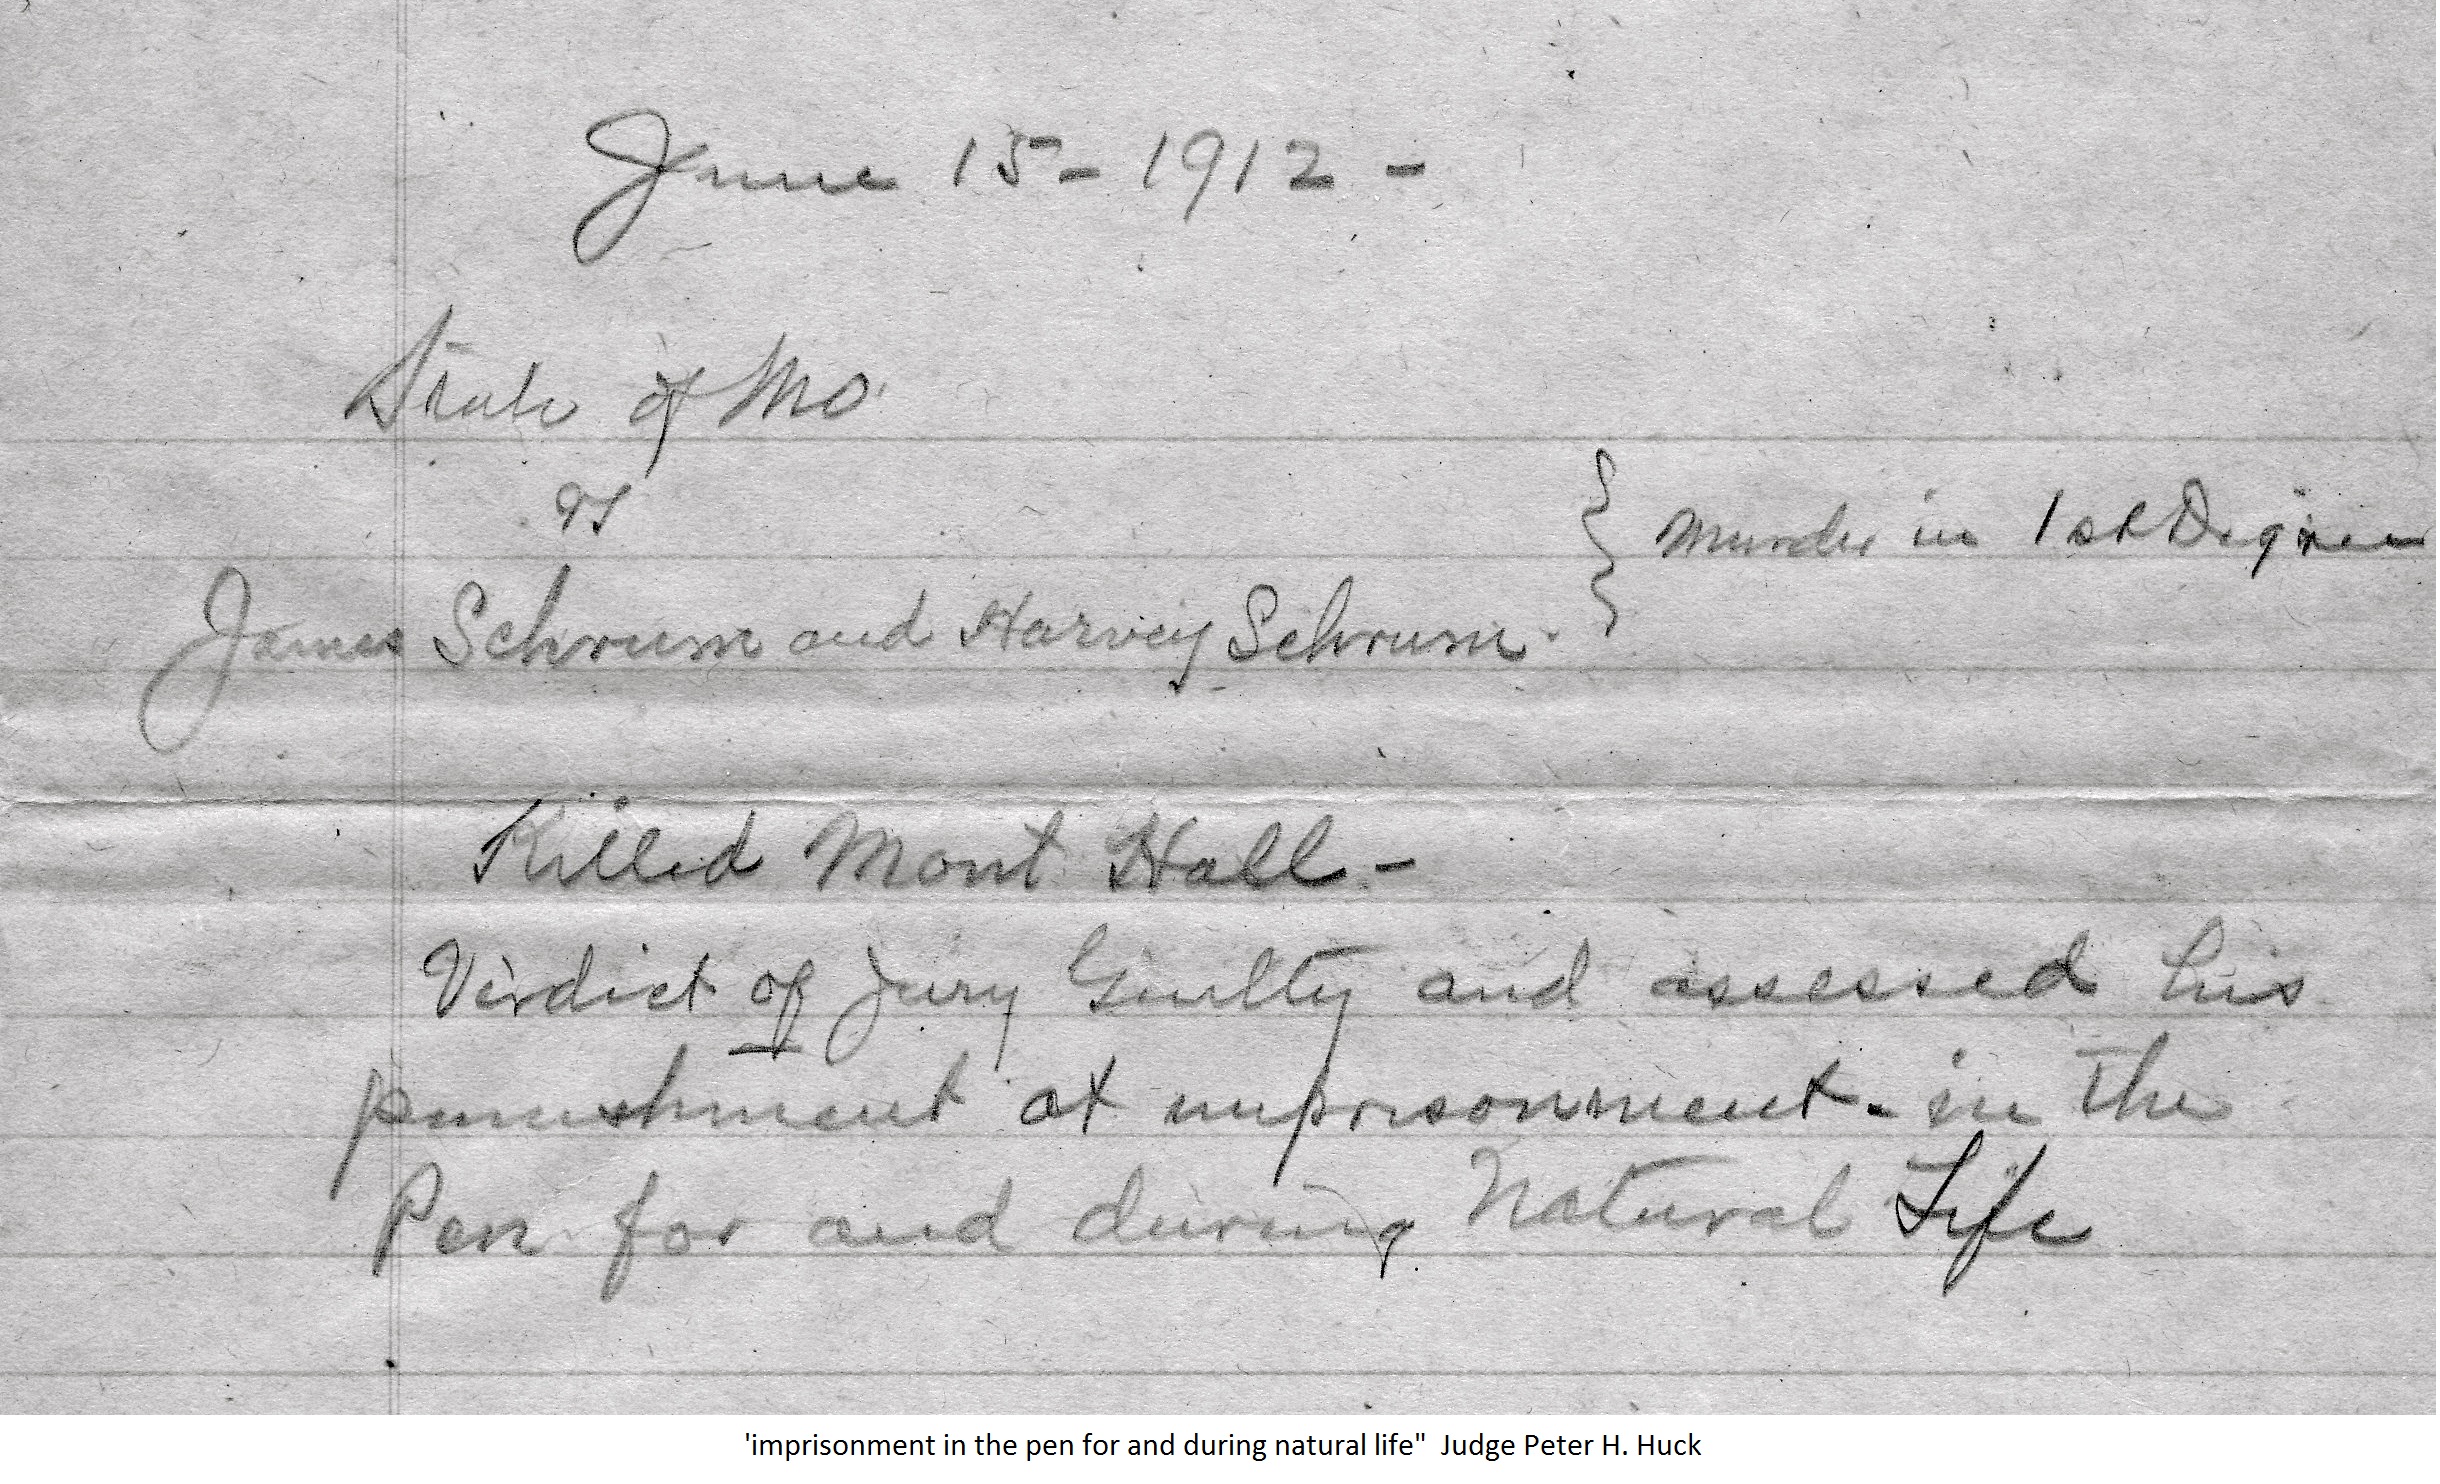 June 15 - 1912 -
State of Mo.
vs
James Schrum and Harvey Schrum. } Murder in 1st Degree
Killed Mont Hall -
Verdict of Jury Guilty and assessed his
punishment at imprisonment - in the
Pen for and during Natural Life
'imprisonment in the pen for and during natural life"  Judge Peter H. Huck